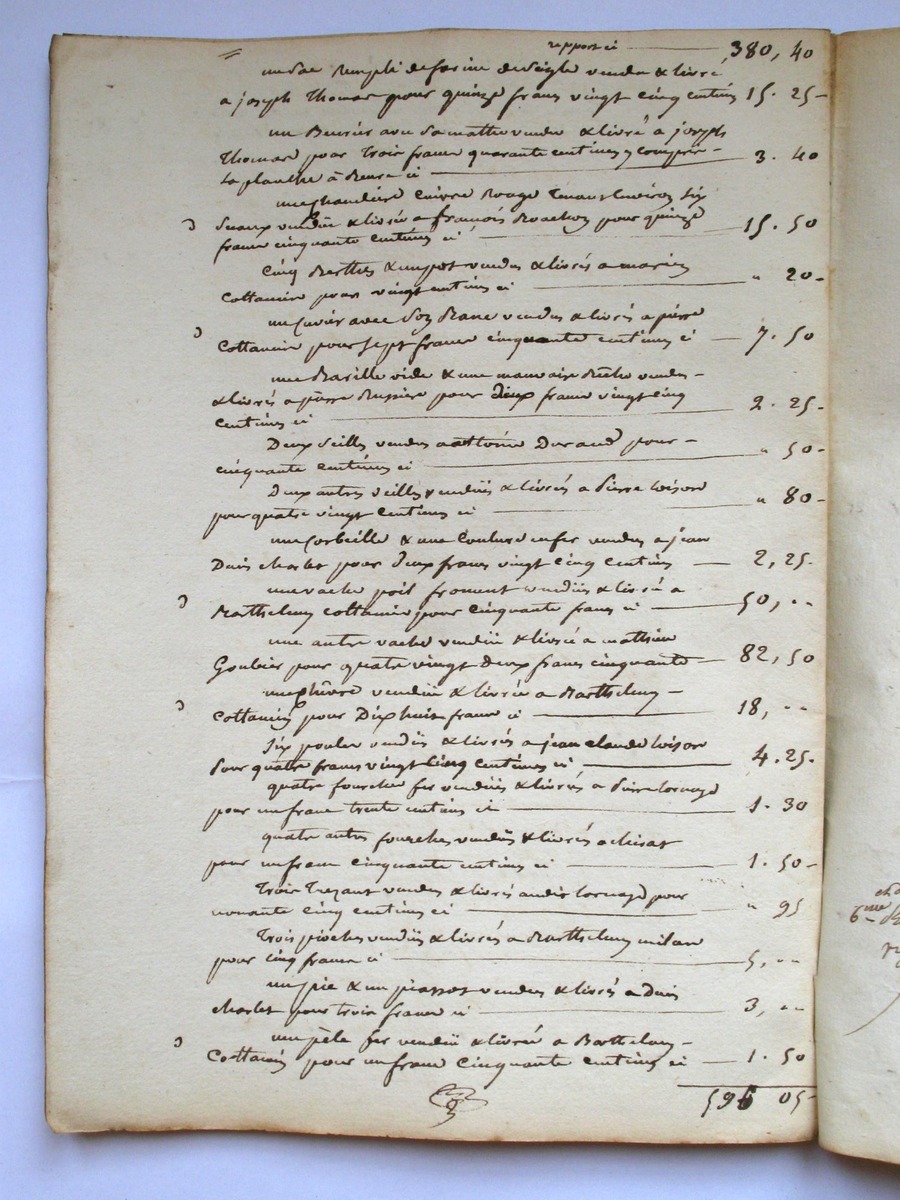 rapport ci 380, 40
un sac rempli de farine de seigle vendu & livré
a joseph Thomas pour quinze francs vingt cinq centimes 15. 25
un Beurier avec sa vendu & livré a joseph
Thomas pour Trois francs quarante centimes y compris
la planche à Beure ci 3. 40
une chaudière cuivre Rouge Tenant environ six
seaux vendüe & livrée a françois pour quinze
francs cinquante centimes ci 15. 50
Cinq & un pot vendus & livrés a
Cottancin pour vingt centimes ci " 20
un Cuvier avec son Banc vendus & livrés a pierre
Cottancin pour sept francs cinquante centimes ci 7. 50
une vide & une mauvaise vendus
& livrés a pierre Russier pour deux francs vingt cinq
centimes ci 2. 25
Deux seilles vendus a antoine Durand pour
cinquante centimes ci " 50
Deux autres seilles vendües & livrés a Pierre loison
pour quatre vingt centimes ci " 80
une Corbeille & une en fer vendus a jean
Denis charles pour deux francs vingt cinq centimes 2, 25
une vache poil froment vendüe & livrée a
Barthelemy Cottancin pour cinquante francs ci 50, "
une autre vache vendüe & livrée a mathieu
Goubier pour quatre vingt deux francs cinquante 82, 50
une vendüe & livrée a Barthelemy
Cottancin pour Dix huit francs ci 18, "
Six poules vendües & livrés a jean claude loison
pour quatre francs vingt Cinq centimes ci 4. 25
quatre fourches fer vendües & livrés a pierre
pour un franc trente centimes ci 1. 30
quatre autres fourches vendües & livrés
pour un franc cinquante centimes ci 1. 50
Trois vendus & livrés audit pour
nonante cinq centimes ci " 95
Trois pioches vendües & livrés a Barthelemy milan
pour cinq francs ci 5, "
un pic & un vendus & livrés a Denis
charles pour trois francs ci 3, "
une pèle fer vendüe & livrée a Barthelemy
Cottancin pour un franc cinquante centimes ci 1. 50
596 05